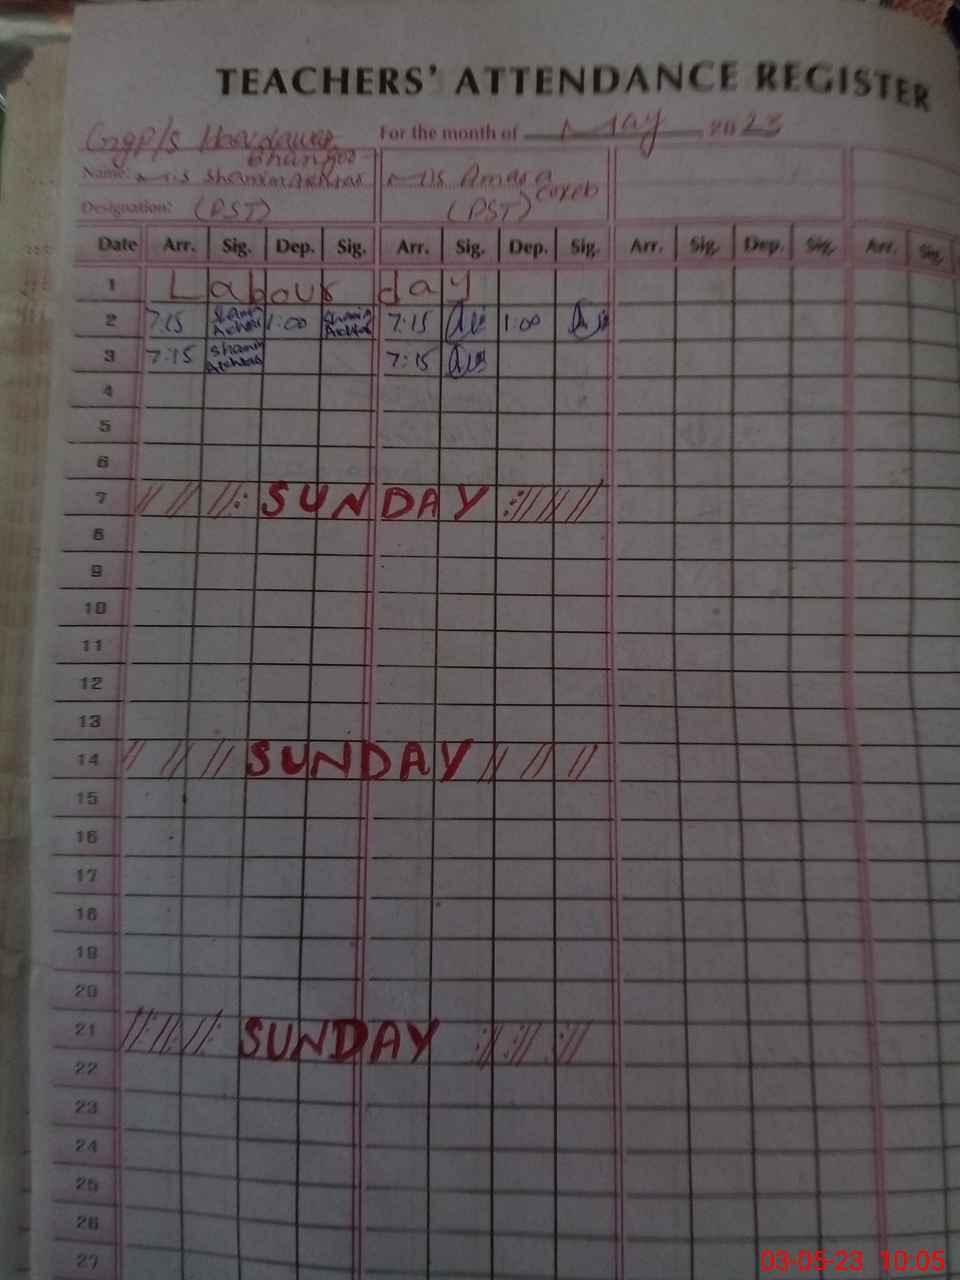 TEACHERS' ATTENDANCE REGISTER
For the month of May 2023
Name: Miss Shamim Akhtar Miss Amara
Designation: (PST) (PST)
Date Arr. Sig. Dep. Sig. Arr. Sig. Dep. Sig. Arr. Sig. Dep. Sig. Arr. Sig.
1 Labour day
2 7:15 Shamim Akhtar 1:00 Shamim Akhtar 7:15 1:00
3 7:15 Shamim Akhtar 7:15
4
5
6
7 SUNDAY
8
9
10
11
12
13
14 SUNDAY
15
16
17
18
19
20
21 SUNDAY
22
23
24
25
26
27
03-05-23 10:05